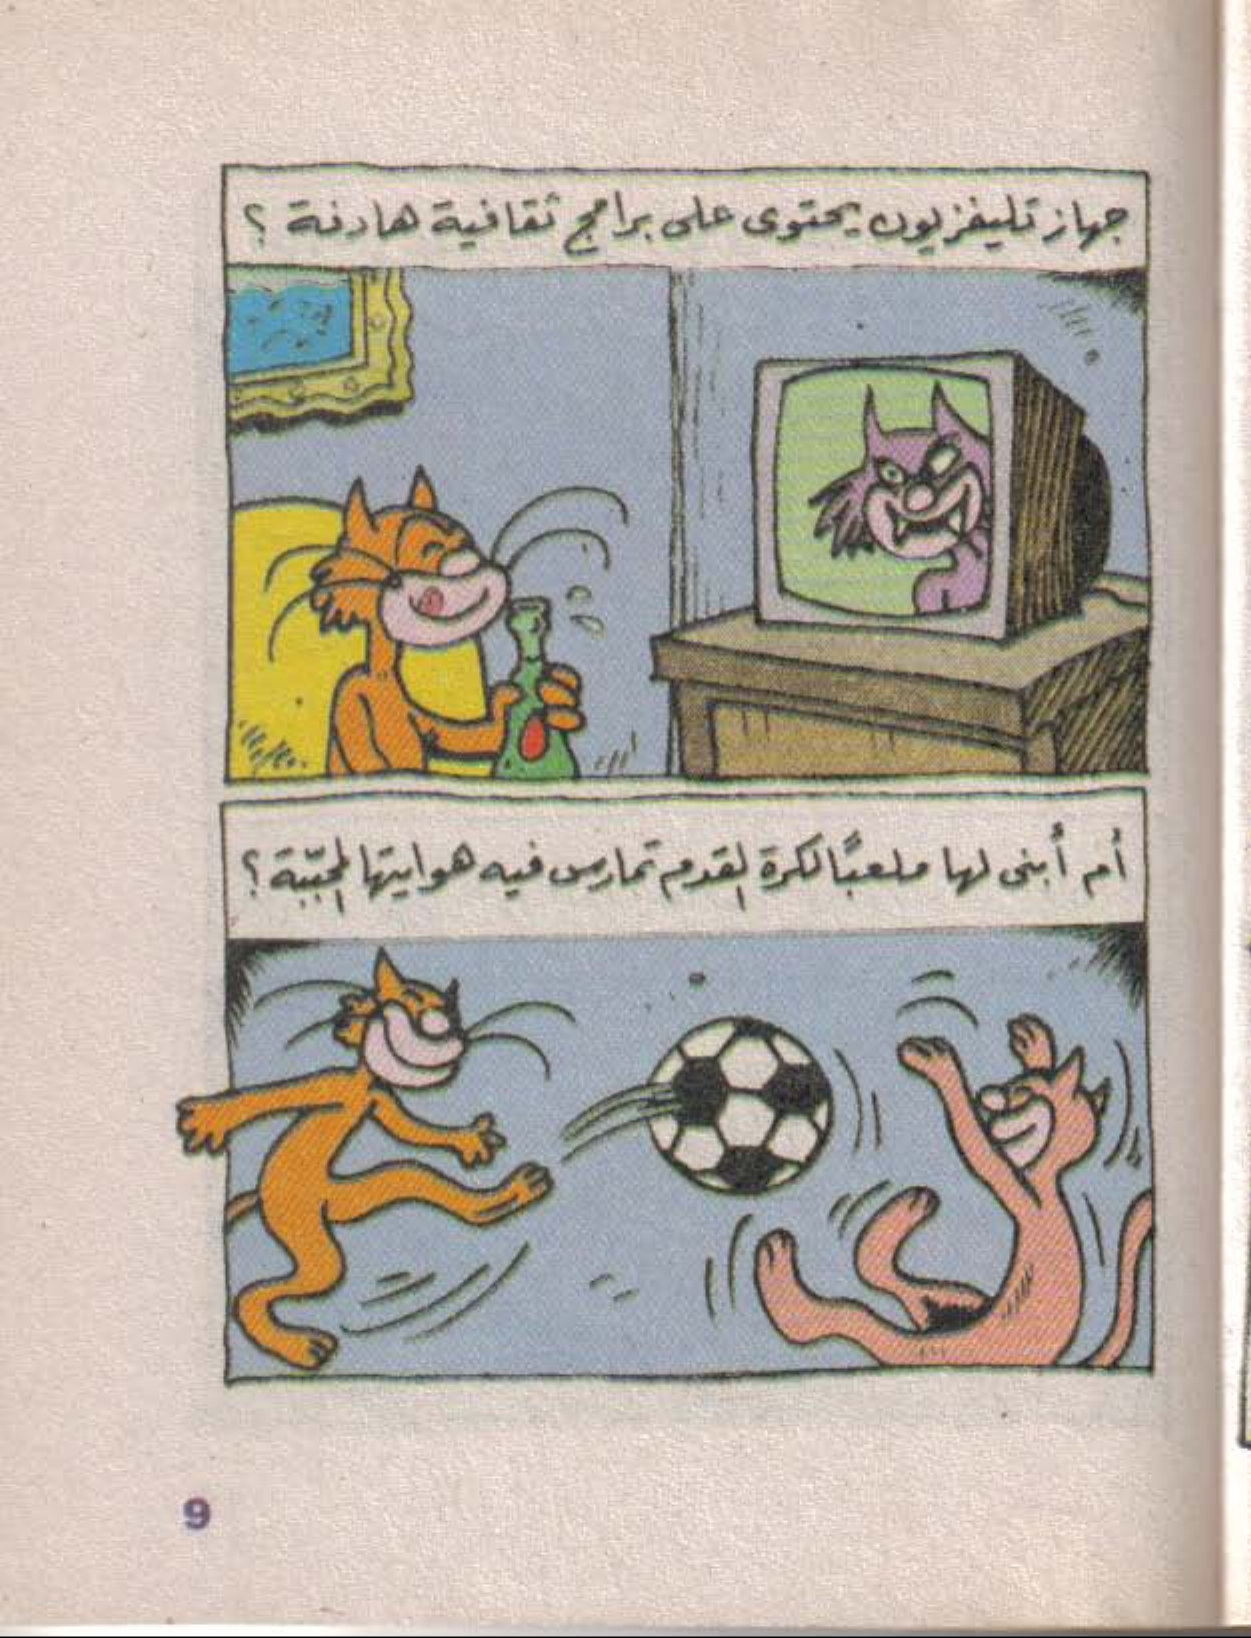 جهاز تليفزيون يحتوى على برامج ثقافية هادفة ؟
أم أبنى لها ملعبًا لكرة القدم تمارس فيه هوايتها المحبّبة ؟
9